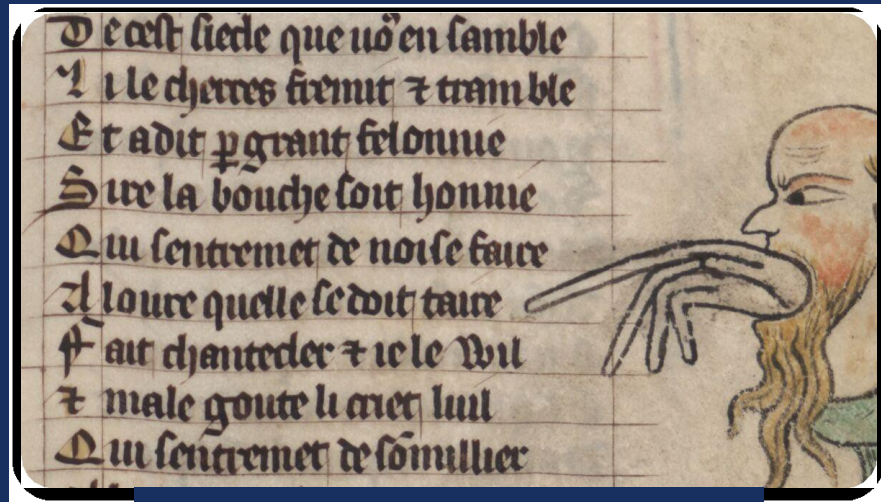 De cest siecle que uo9 en samble
Li lecherres fremit ⁊ tramble
Et a dit ꝑ grant felonnie
Sire la bouche soit honnie
Qui sentremet de noise faire
A loure quelle se doit taire
Fait chantecler ⁊ ie le Wil
⁊ male goute li criet luil
Qui sentremet de sōmillier